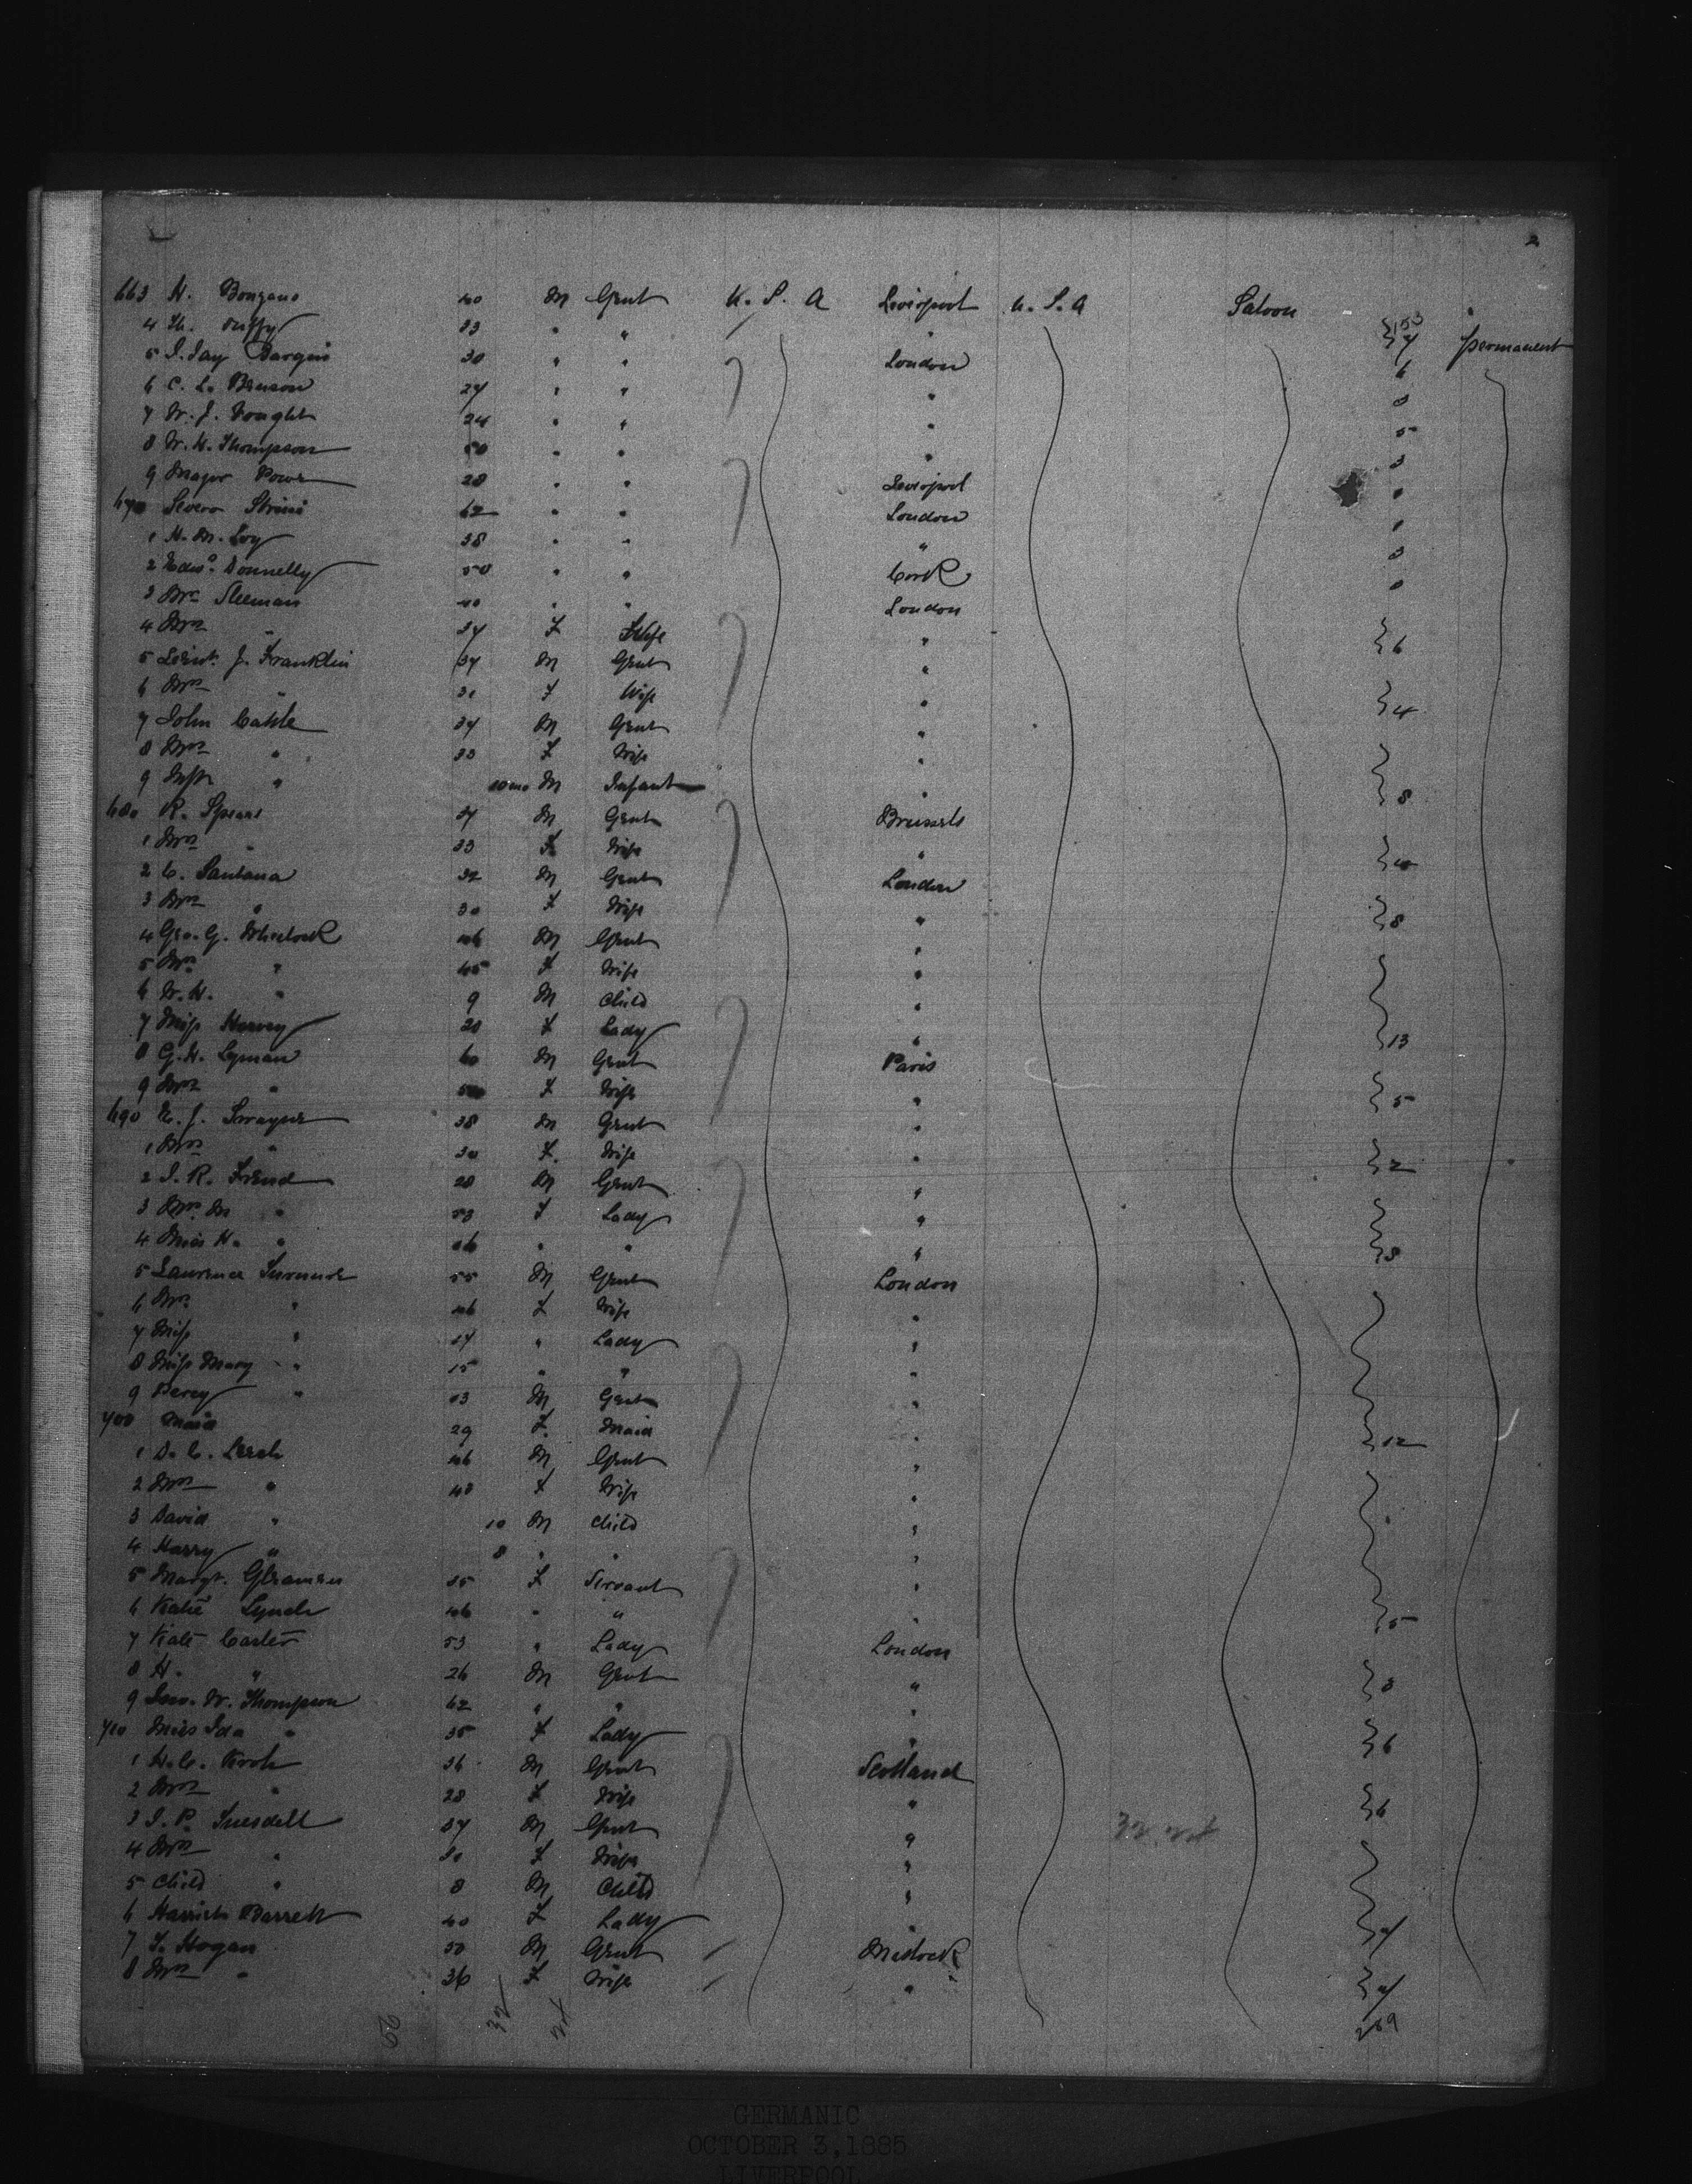 2
663 H. Bongano 40 M Gent U. S. A Liverpool U. S. A Saloon
4 Th. Duffy 33 " " " 153 7 permanent
5 I. Jay 30 " " London 6
6 C. L. Benson 27 " " " 3
7 W. J. Vought 24 " " " 5
8 W. H. Thompson 50 " " " 3
9 Major Power 28 " " Liverpool 1
670 Severo Strini 62 " " London 1
1 H. M. Loy 38 " " " 3
2 Edwd. Donnelly 50 " " Cork
3 Mr. Sleeman 40 " " London
4 Mrs " 37 F Wife " 6
5 Lieut. J. Franklin 37 M Gent "
6 Mrs " 31 F Wife " 4
7 John Cattle 37 M Gent "
8 Mrs " 33 F Wife "
9 Mstr " 10 mo M Infant " 8
680 R. Spears 37 M Gent Brussels
1 Mrs " 33 F Wife "
2 C. Santana 32 M Gent London
3 Mrs " 30 F Wife " 8
4 Geo. G. Wheelock 46 M Gent "
5 Mrs " 45 F Wife "
6 W. H. " 9 M Child "
7 Miss Harvey 20 F Lady " 13
8 G. H. Lyman 60 M Gent Paris
9 Mrs " F Wife " 5
690 E. J. Swayne 38 M Gent "
1 Mrs " 30 F. Wife " 2
2 I. R. Friend 28 M Gent "
3 Mrs. M " 53 F Lady "
4 Miss H. " 16 " " " 8
5 Lawrence 55 M Gent London
6 Mrs " 46 F Wife "
7 Miss " 17 " Lady "
8 Miss Mary " 15 " " "
9 Percy " 13 M Gent "
700 Maid 29 F. Maid " 12
1 D. C. Lerch 46 M Gent "
2 Mrs " 40 F Wife "
3 David " 10 M Child "
4 Harry " 8 " " "
5 Margt. 35 F Servant "
6 Katie Lynch 46 " " " 5
7 Kate Carter 53 " Lady London
8 H. " 26 M Gent " 3
9 Jno. W. Thompson 62 " " "
710 Miss Ida " 35 F Lady " 6
1 H. C. Koch 36 M Gent Scotland
2 Mrs " 28 F Wife " 6
3 I. P. Truesdell 37 M Gent "
4 Mrs " 30 F Wife "
5 Child " 8 M Child "
6 Harriet Barrett 40 F Lady " 7
7 T. Hogan 50 M Gent Matlock
8 Mrs " 36 F Wife " 7
20 32 24 269
GERMANIC
OCTOBER 3, 1885
LIVERPOOL